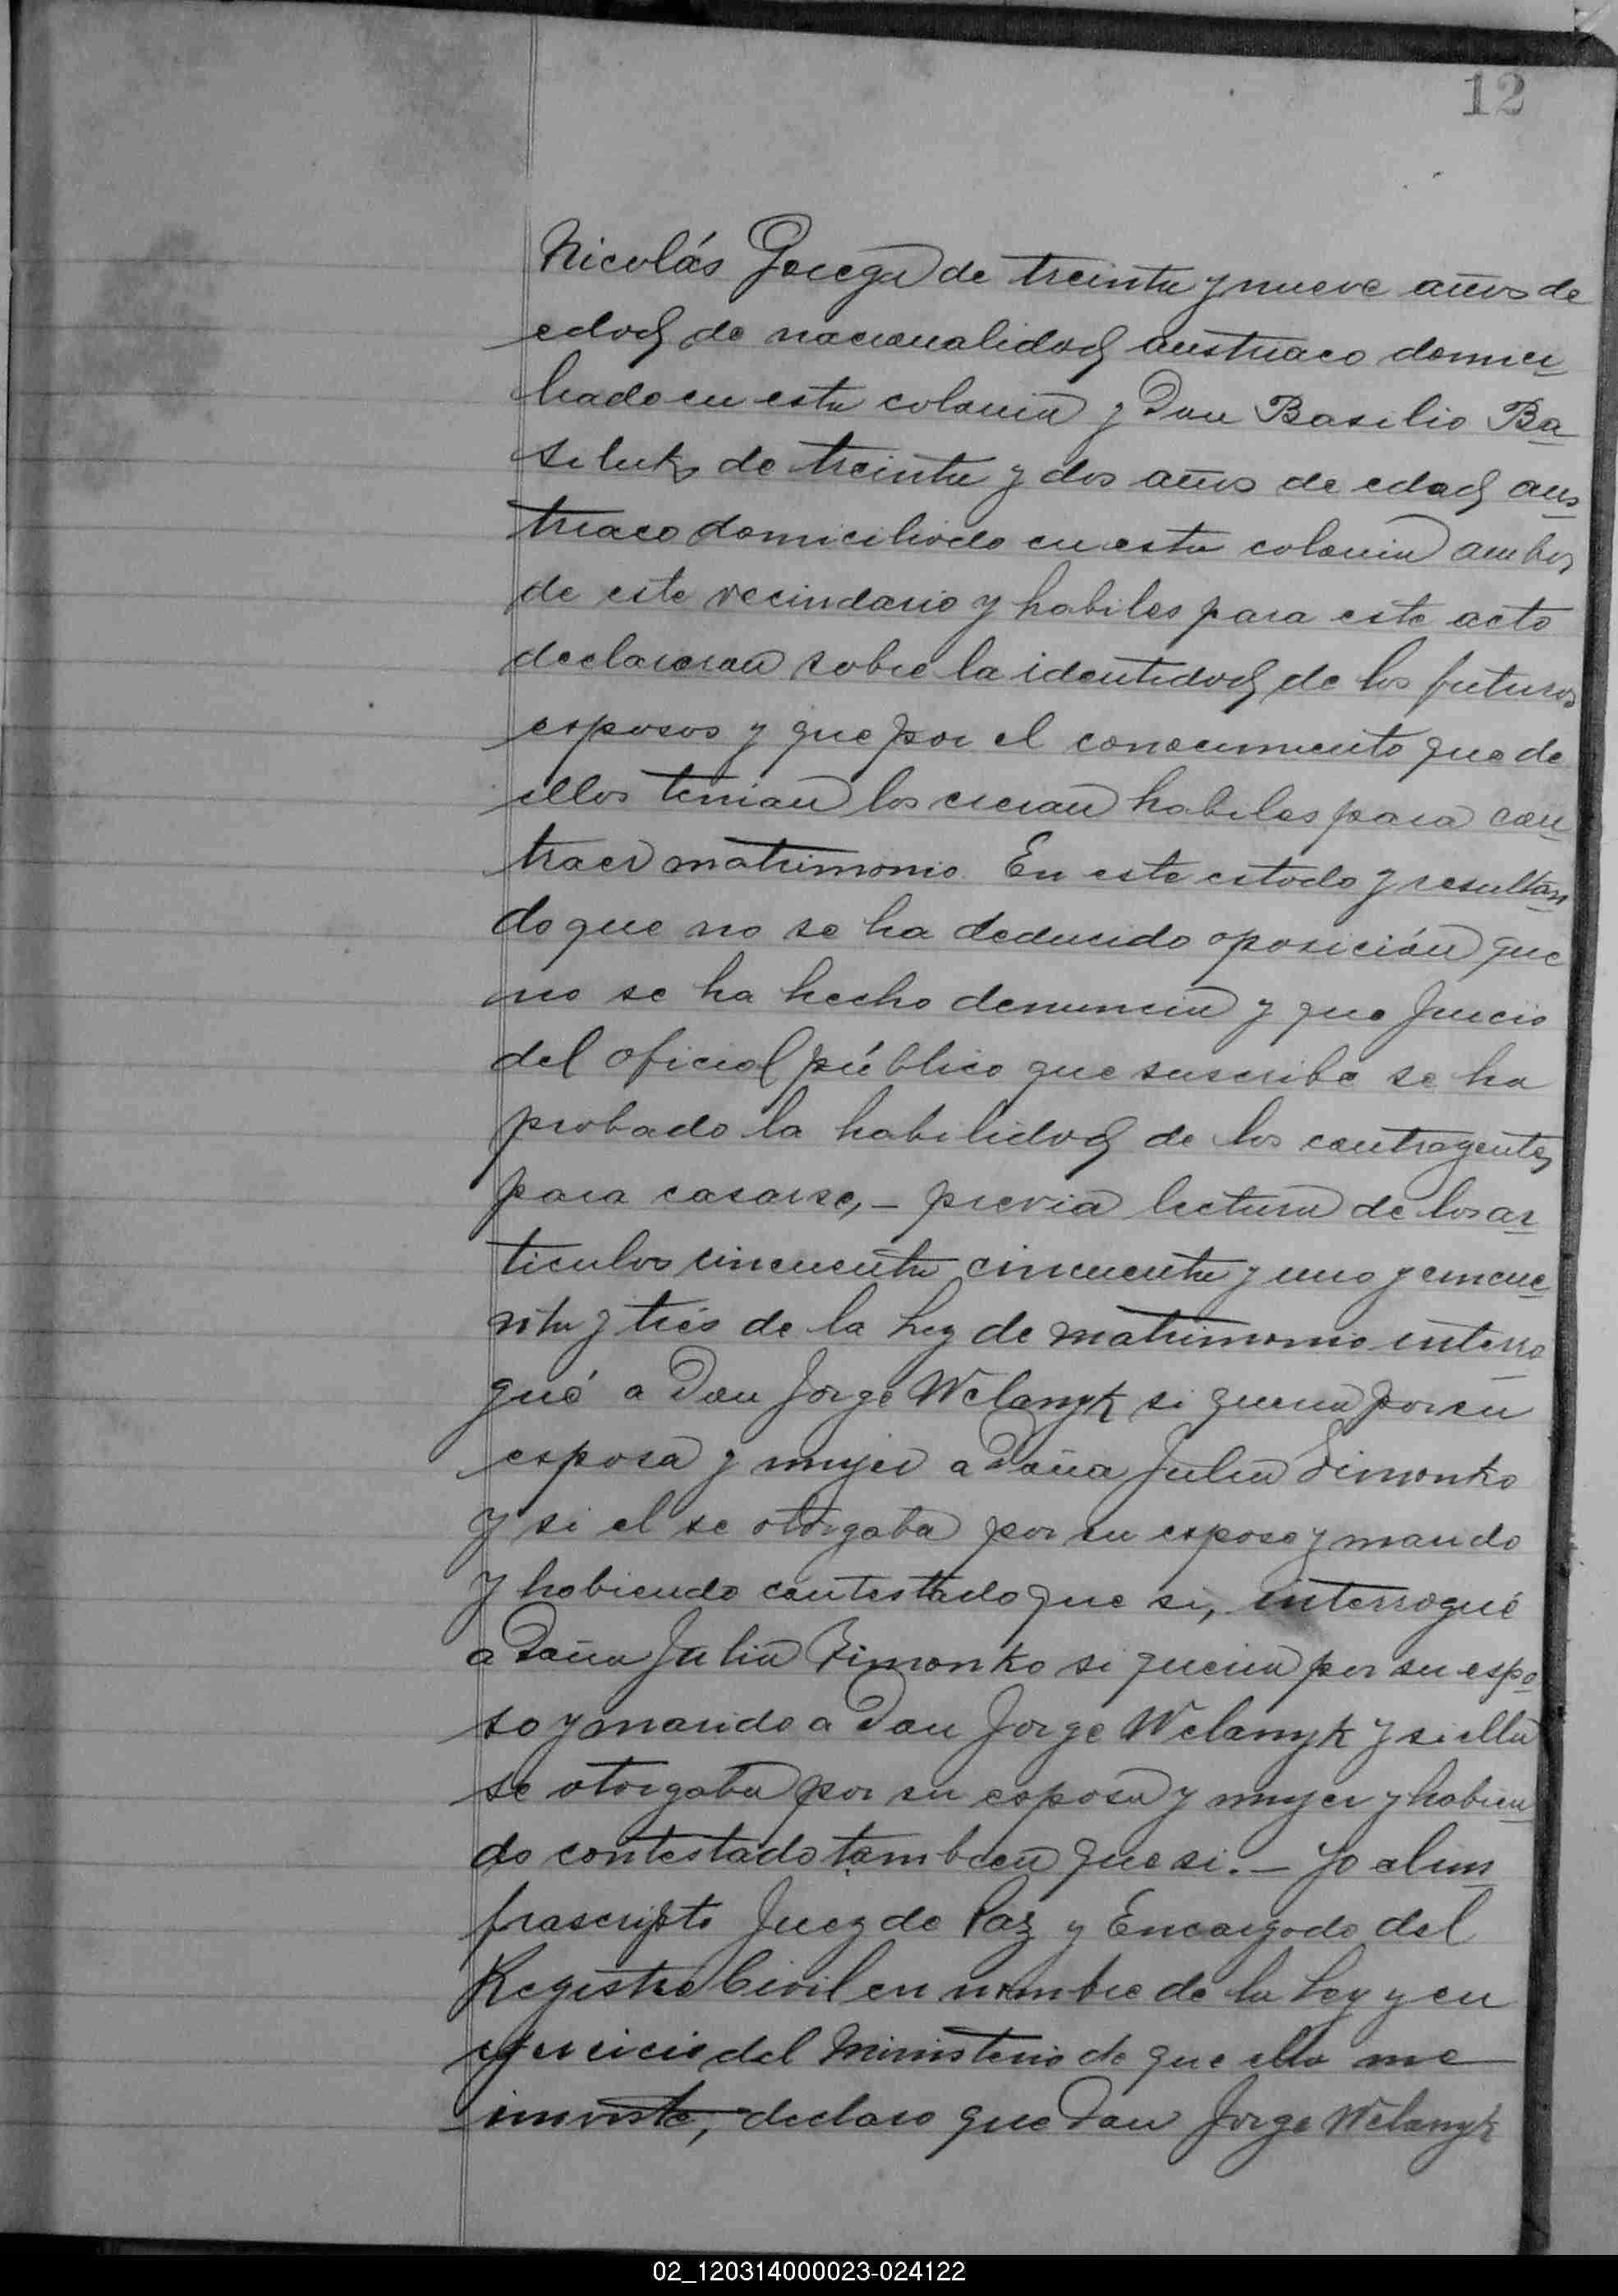 12
Nicolás Gorega de treinta y nueve años de
edad de nacionalidad austriaco domici
liado en esta colonia y Don Basilio Ba
siluk de treinta y dos años de edad aus
triaco domiciliado en esta colonia ambos
de este vecindario y habiles para este acto
declararon sobre la identidad de los futuros
esposos y que por el conocimiento que de
ellos tenian los creian habiles para con
traer matrimonio. En este estado y resultan
do que no se ha deducido oposición que
no se ha hecho denuncia y que juicio
del oficial público que suscribe se ha
probado la habilidad de los contragentes
para casarse,– previa lectura de los ar
ticulos cincuenta cincuenta y uno y cincue
nta y trés de la Ley de matrimonio interro
gué a Don Jorge Welanyk si queria por su
esposa y mujer a Doña Julia Zimonko
y si el se otorgaba por su esposo y marido
y habiendo contestado que si, interrogué
a Doña Julia Zimonko si queria por su espo
so y marido a Don Jorge Welanyk y si ella
se otorgaba por su esposa y mujer y habien
do contestado tambien que si.– Yo el in
frascripto Juez de Paz y Encargado del
Registro Civil en nombre de la Ley y en
ejercicio del Ministerio de que ella me
inviste, declaro que Don Jorge Welanyk
02_120314000023-024122